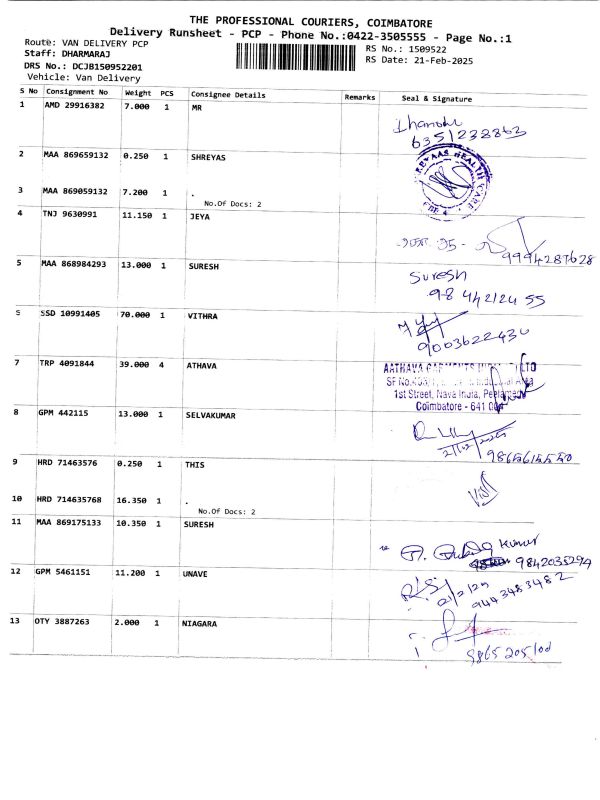 THE PROFESSIONAL COURIERS, COIMBATORE
Delivery Runsheet - PCP - Phone No.:0422-3505555 - Page No.:1
Route: VAN DELIVERY PCP
RS No.: 1509522
Staff: DHARMARAJ
RS Date: 21-Feb-2025
DRS No.: DCJB150952201
Vehicle: Van Delivery
S No Consignment No Weight PCS Consignee Details Remarks Seal & Signature
1 AMD 29916382 7.000 1 MR
6351232863
2 MAA 869659132 0.250 1 SHREYAS
HEALTH CARE
3 MAA 869059132 7.200 1 .
No.Of Docs: 2
4 TNJ 9630991 11.150 1 JEYA
9994287628
5 MAA 868984293 13.000 1 SURESH
Suresh
98 442124 55
6 SSD 10991405 70.000 1 VITHRA
9003622430
7 TRP 4091844 39.000 4 ATHAVA
AATHAVA GARMENTS LTD
1st Street, Nava India, Peelamedu
Coimbatore - 641 004
8 GPM 442115 13.000 1 SELVAKUMAR
9 HRD 71463576 0.250 1 THIS
10 HRD 714635768 16.350 1 .
No.Of Docs: 2
11 MAA 869175133 10.350 1 SURESH
Kumar
9842035294
12 GPM 5461151 11.200 1 UNAVE
9443483482
13 OTY 3887263 2.000 1 NIAGARA